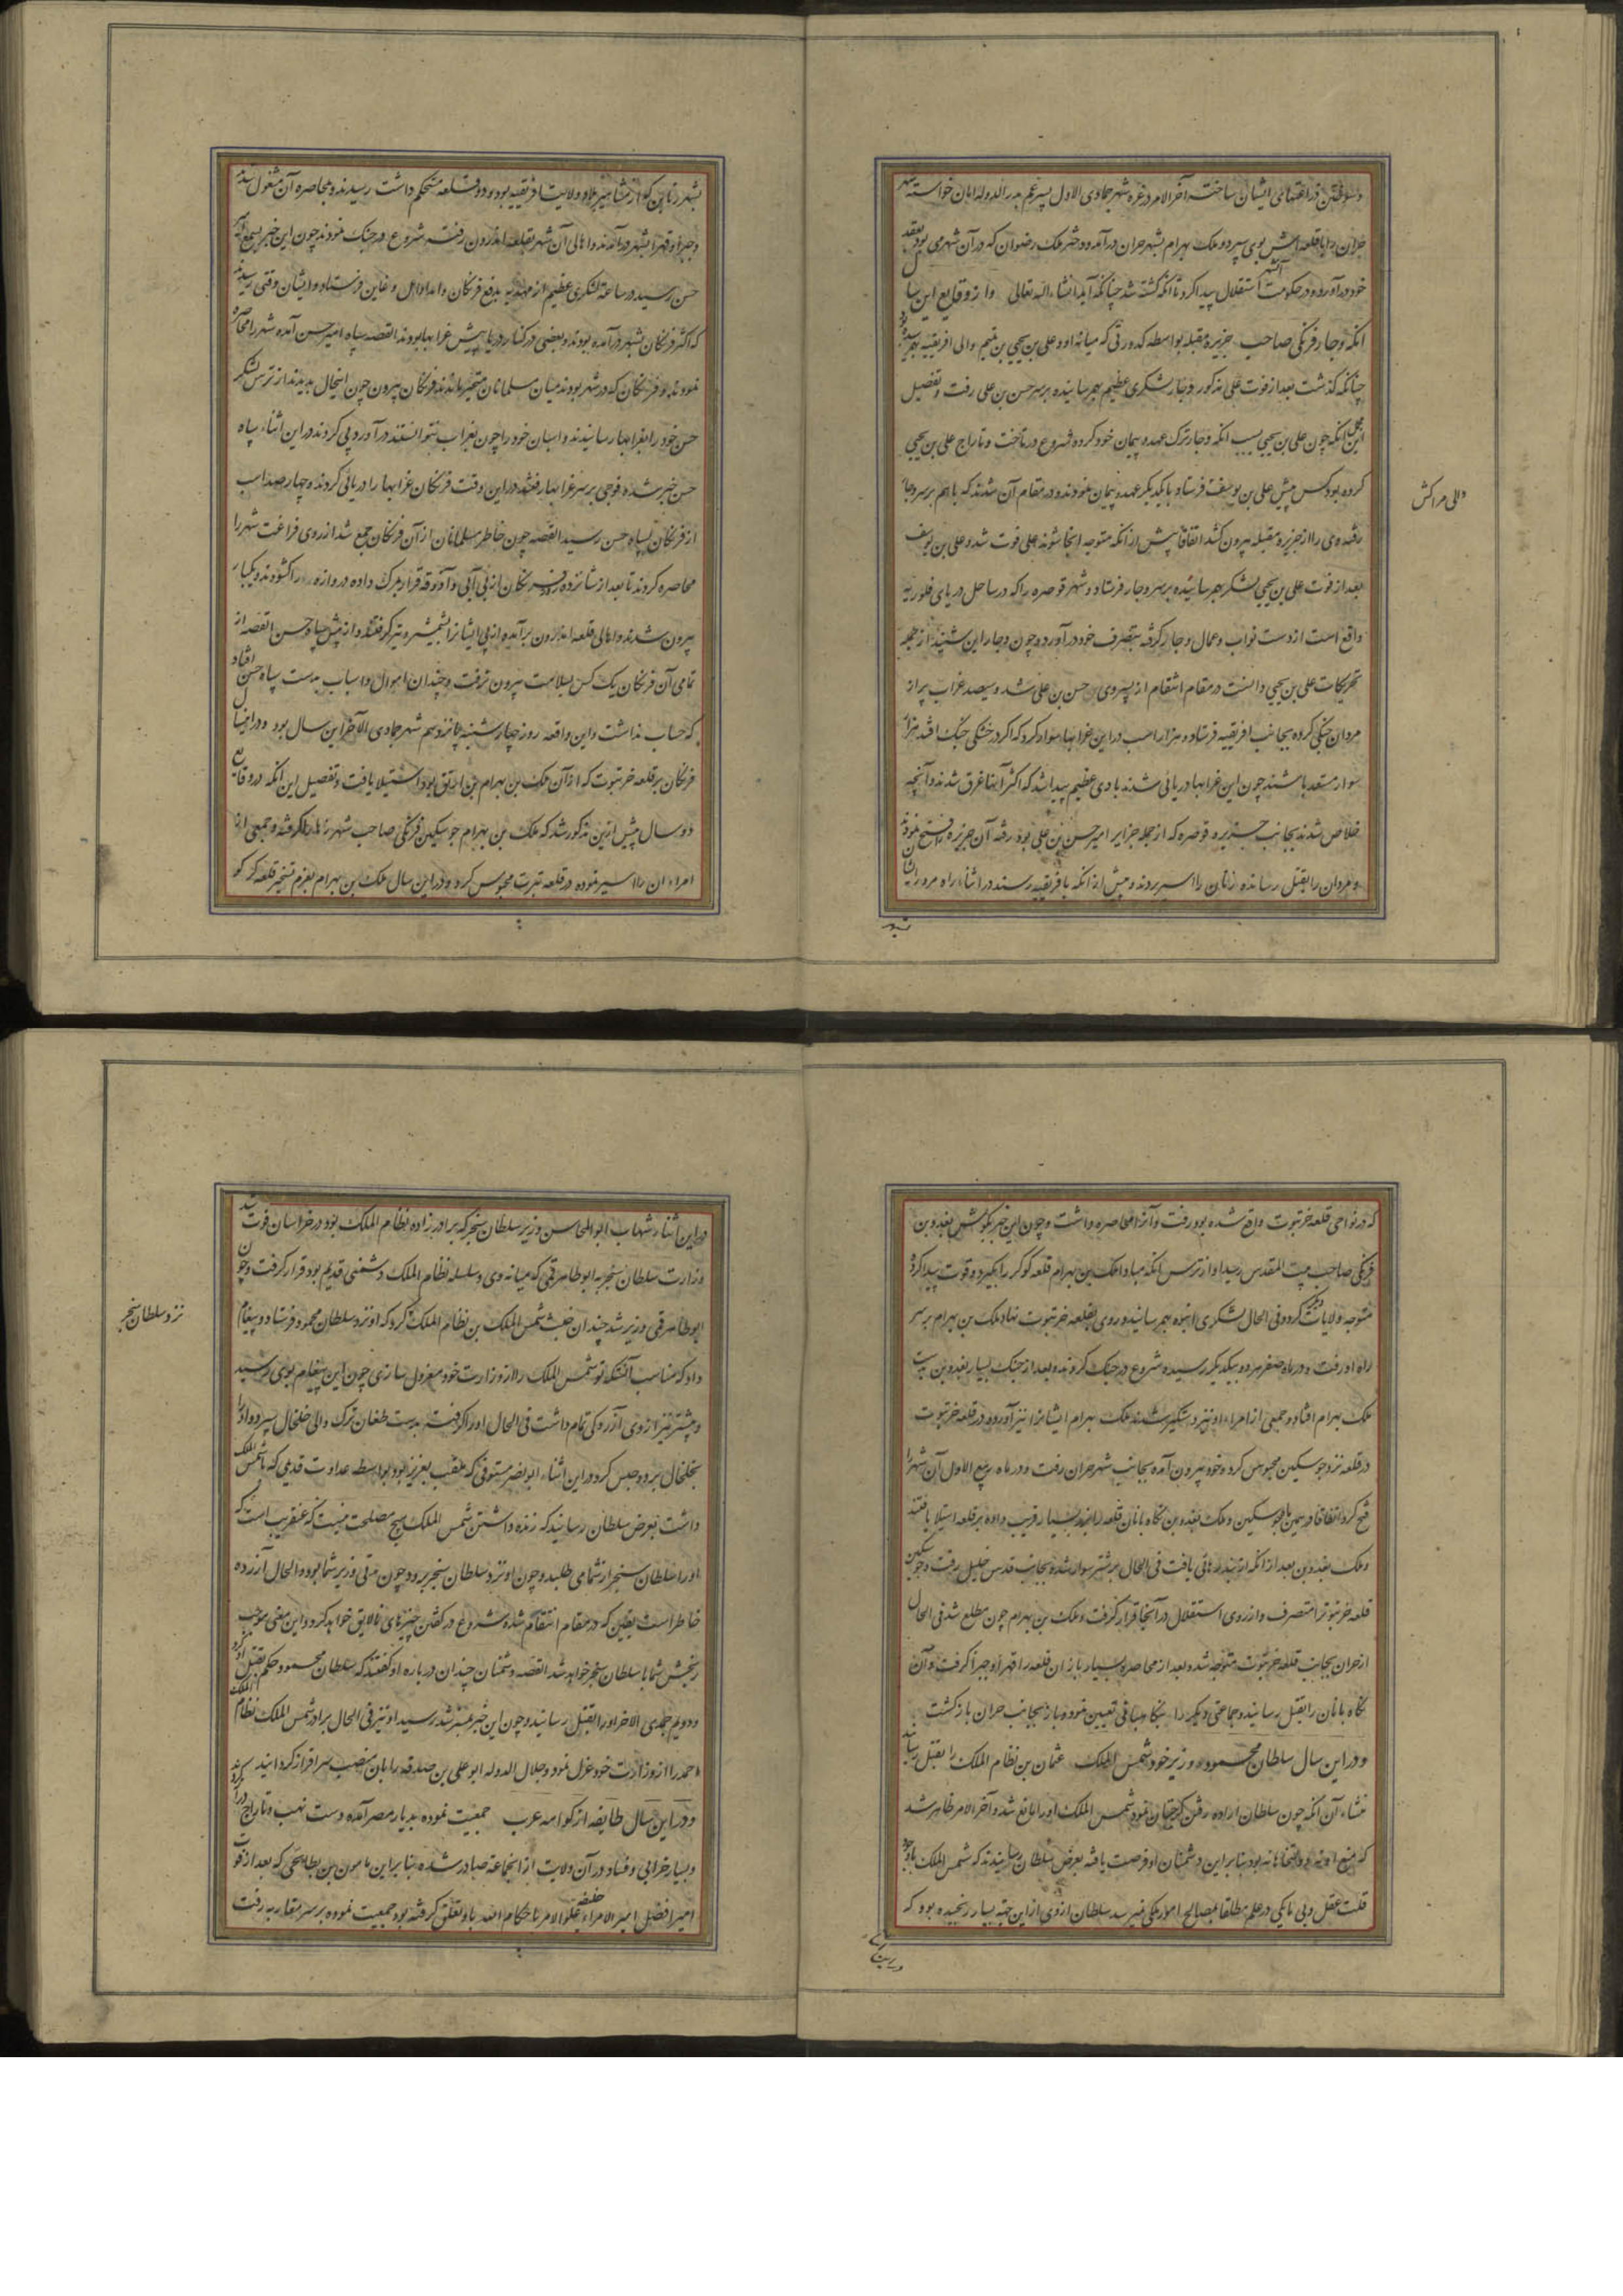 و سوختن در اعتهای ایشان ساخت آخر الامر در غره شهر جمادی الاول پسر عم بدر الدوله امان خواسته شهر
حران را با قلعه اش بوی سپرد و ملک بهرام بشهر حران درآمد و دختر ملک رضوان که در آن شهر می بود بعقد
خود درآورد و در حکومت آن شهر استقلال پیدا کرد تا آنکه کشته شد چنانکه آید انشاء الله تعالی و از وقایع این سال
آنکه وجار فرنگی صاحب جزیره مقبله بواسطه کدورتی که میانه او و علی بن یحیی بن تمیم والی افریقیه بهم رسیده بود
چنانکه گذشت بعد از فوت علی مذکور وجار لشکری عظیم بهم رسانیده بر سر حسن بن علی رفت و تفصیل
این مجمل آنکه چون علی بن یحیی بسبب آنکه وجار ترک عهد و پیمان خود کرده شروع در تاخت و تاراج علی بن یحیی
کرده بود کس پیش علی بن یوسف فرستاد و با یکدیگر عهد و پیمان نمودند و در مقام آن شدند که باهم بر سر وجار
والی مراکش
رفته وی را از جزیره مقبله بیرون کنند اتفاقا پیش از آنکه متوجه آنجا شوند علی فوت شد و علی بن یوسف
بعد از فوت علی بن یحیی لشکر بهم رسانیده بر سر وجار فرستاد و شهر قوصره را که در ساحل دریای قلوریه
واقع است از دست نواب و عمال وجار گرفته بتصرف خود درآورد و چون وجار این شنید از جمله
تحریکات علی بن یحیی دانست در مقام انتقام از پسر وی حسن بن علی شد و سیصد غراب پر از
مردان جنگی کرده بجانب افریقیه فرستاد و هزار اسب در این غرابها سوار کرد که اگر در خشکی جنگ افتد هزار
سوار مستعد باشند چون این غرابها دریائی شدند بادی عظیم پیدا شد که اکثر آنها غرق شدند و آنچه
خلاص شدند بجانب جزیره قوصره که از جمله جزایر امیر حسن بن علی بود رفته آن جزیره فتح نمودند
و مردان را بقتل رسانده زنان را اسیر بردند و پیش از آنکه بافریقیه رسند در اثناء راه مرور ایشان
بشهر
بشهر که از مشاهیر بلاد ولایت افریقیه بود و دو قلعه مستحکم داشت رسیدند و بمحاصره آن مشغول شدند
و جبرا و قهرا بشهر درآمدند و اهالی آن شهر بقلعه اندرون رفته شروع در جنگ نمودند چون این خبر بسمع امیر
حسن رسید در ساعت لشکری عظیم از مهدیه بدفع فرنگان و امداد اهل فرستاد و ایشان وقتی رسیدند
که اکثر فرنگان بشهر درآمده بودند و بعضی در کنار دریا پیش غرابها بودند القصه سپاه امیر حسن آمده شهر را محاصره
نمودند و فرنگان که در شهر بودند میان مسلمانان متحیر ماندند فرنگان بیرون چون اینحال بدیدند از ترس لشکر
حسن خود را بغرابها رسانیدند و اسبان خود را چون بغراب نتوانستند درآورد پی کردند در این اثناء سپاه
حسن خبر شده فوجی بر سر غرابها رفتند در این وقت فرنگان غرابها را دریائی کردند و چهار صد اسب
از فرنگان بسپاه حسن رسید القصه چون خاطر مسلمانان از آن فرنگان جمع شد از روی فراغت شهر را
محاصره کردند تا بعد از شانزده روز فرنگان از بی آبی و آذوقه قرار بمرگ داده دروازه را گشودند و یکبار
بیرون شدند و اهالی قلعه اندرون برآمده از پی ایشان را بشمشیر و تیر گرفتند و از پیش سپاه حسن القصه از
تمامی آن فرنگان یک کس بسلامت بیرون نرفت و چندان اموال و اسباب بدست سپاه حسن افتاد
که حساب نداشت و این واقعه روز چهارشنبه پانزدهم شهر جمادی الآخر این سال بود و در این سال
فرنگان بر قلعه خرتبوت که از آن ملک بن بهرام بن ارتق بود استیلا یافتند و تفصیل این آنکه در وقایع
دو سال پیش ازین مذکور شد که ملک بن بهرام جوسکین فرنگی صاحب شهر رها را گرفته و جمعی از
امراء آن را اسیر نموده در قلعه تبرت محبوس کرد و در این سال ملک بن بهرام بعزم تسخیر قلعه کرکو
که در نواحی قلعه خرتبوت واقع شده بود رفت و آنرا محاصره داشت و چون این خبر بگوش بغدوین
فرنگی صاحب بیت المقدس رسید او از ترس آنکه مبادا ملک بن بهرام قلعه کوکر را بگیرد و قوت پیدا کرده
متوجه ولایات دیگر گردد فی الحال لشکری انبوه بهم رسانید و روی بقلعه خرتبوت نهاد ملک بن بهرام بر سر
راه او رفت و در ماه صفر هر دو بیکدیگر رسیده شروع در جنگ کردند و بعد از جنگ بسیار بغدوین بدست
ملک بهرام افتاد و جمعی از امراء او نیز دستگیر شدند ملک بهرام ایشانرا نیز آورده در قلعه خرتبوت
در قلعه نزد جوسکین محبوس کرد و خود بیرون آمده بجانب شهر حران رفت و در ماه ربیع الاول آن شهر را
فتح کرد اتفاقا در همین ماه جوسکین و ملک بغدوین نگاه بانان قلعه را بنوید بسیار فریب داده بر قلعه استیلا یافتند
و ملک بغدوین بعد از آنکه از بند رهائی یافت فی الحال بر شتر سوار شده بجانب قدس خلیل رفت و جوسکین
قلعه خرتبوت را متصرف و از روی استقلال در آنجا قرار گرفت و ملک بن بهرام چون مطلع شد فی الحال
از حران بجانب قلعه خرتبوت متوجه شد و بعد از محاصره بسیار باز آن قلعه را قهرا و جبرا گرفت و آن
نگاه بانان را بقتل رسانید و جماعتی دیگر را بنگاهبانی تعیین نموده باز بجانب حران بازگشت
و در این سال سلطان محمود وزیر خود شمس الملک عثمان بن نظام الملک را بقتل رسانید
منشاء آن آنکه چون سلطان اراده رفتن گرجستان نمود شمس الملک او را مانع شد و آخر الامر ظاهر شد
که منع او نه دولتخواهانه بود بنا بر این دشمنان او فرصت یافته بعرض سلطان رسانیدند که شمس الملک با وجود
قلت عقل و بی باکی در علم مطلقا بمصالح امور ملکی نمیرسد سلطان از وی از این جهت بسیار رنجیده بود که
در این اثنا
در این اثناء شهاب ابو المحاسن وزیر سلطان سنجر که برادر زاده نظام الملک بود در خراسان فوت شد
وزارت سلطان سنجر به ابو طاهر قمی که میانه وی و سلسله نظام الملک دشمنی قدیم بود قرار گرفت و چون
ابو طاهر قمی وزیر شد چندان خبث شمس الملک بن نظام الملک کرد که او نزد سلطان محمود فرستاد و پیغام
نزد سلطان سنجر
داد که مناسب آنستکه تو شمس الملک را از وزارت خود معزول سازی چون این پیغام بوی رسید
و پیشتر نیز از وی آزردگی تمام داشت فی الحال او را گرفته بدست طغان ترک والی خلخال سپرد و او را
بخلخال برد و حبس کرد در این اثناء ابو نصر مستوفی که ملقب بعزیز بود بواسطه عداوت قدیمی که با شمس الملک
داشت بعرض سلطان رسانید که زنده داشتن شمس الملک هیچ مصلحت نیست که عنقریب است که
او را سلطان سنجر از شما می طلبد و چون او نزد سلطان سنجر برود و چون مدتی وزیر شما بوده و الحال آزرده
خاطر است یقین که در مقام انتقام شده شروع در گفتن چیزهای نالایق خواهد کرد و این معنی موجب
رنجش شما با سلطان سنجر خواهد شد القصه دشمنان چندان در باره او گفتند که سلطان محمود حکم بقتل او کرد
و دویم جمادی الاخر او را بقتل رسانید و چون این خبر رسید او نیز فی الحال برادر شمس الملک نظام الملک
احمد را از وزارت خود عزل نمود و جلال الدوله ابو علی بن صدقه را بآن منصب سرافراز گردانید
و در این سال طایفه از لواته عرب جمعیت نموده بدیار مصر آمده دست نهب و تاراج برآوردند
و بسیار خرابی و فساد در آن ولایت از آنجماعت صادر شده بنا بر این مامون بن بطایحی که بعد از فوت
امیر افضل امیر الامراء خلیفه علو الامر باحکام الله باو تعلق گرفته بود جمعیت نموده بر سر مغاربه رفت